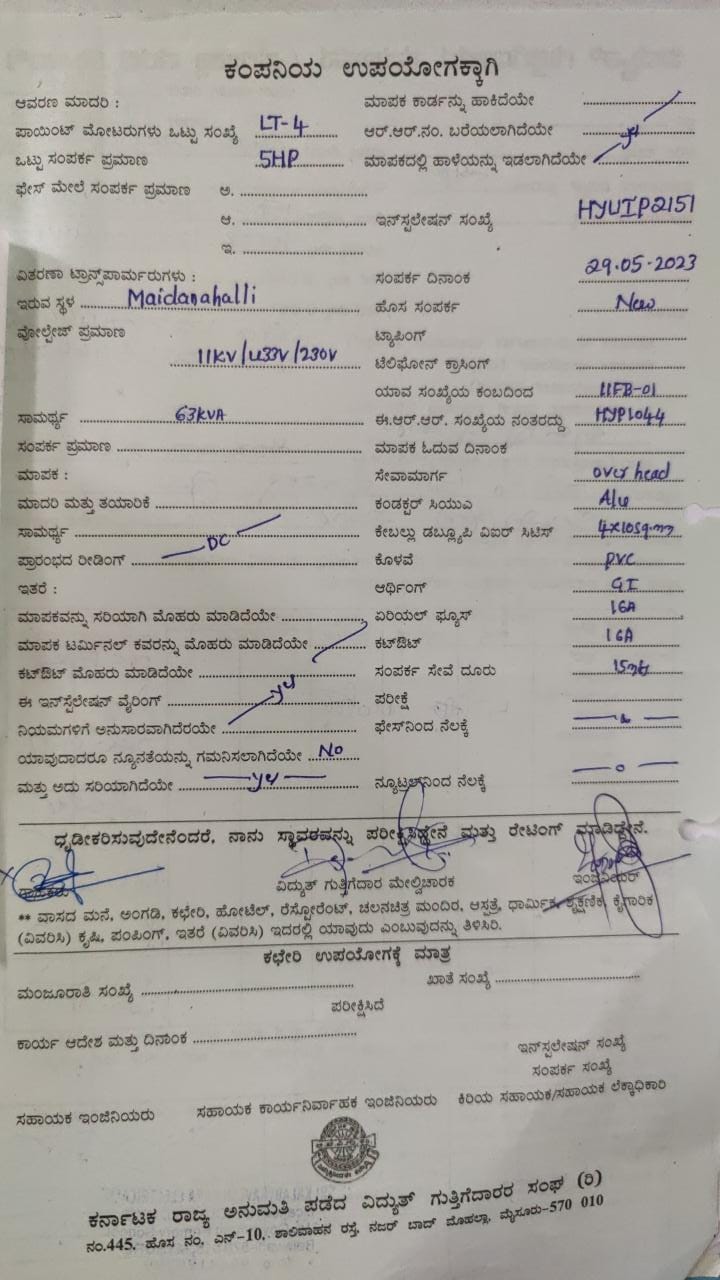 ಕಂಪನಿಯ ಉಪಯೋಗಕ್ಕಾಗಿ
ಆವರಣ ಮಾದರಿ :
ಪಾಯಿಂಟ್ ಮೋಟರುಗಳು ಒಟ್ಟು ಸಂಖ್ಯೆ LT-4
ಒಟ್ಟು ಸಂಪರ್ಕ ಪ್ರಮಾಣ 5HP
ಫೇಸ್ ಮೇಲೆ ಸಂಪರ್ಕ ಪ್ರಮಾಣ ಅ.
ಆ.
ಇ.
ವಿತರಣಾ ಟ್ರಾನ್ಸ್‌ಪಾರ್ಮರುಗಳು :
ಇರುವ ಸ್ಥಳ Maidanahalli
ವೋಲ್ಟೇಜ್ ಪ್ರಮಾಣ
11KV/433V/230V
ಸಾಮರ್ಥ್ಯ 63KVA
ಸಂಪರ್ಕ ಪ್ರಮಾಣ
ಮಾಪಕ :
ಮಾದರಿ ಮತ್ತು ತಯಾರಿಕೆ
ಸಾಮರ್ಥ್ಯ
ಪ್ರಾರಂಭದ ರೀಡಿಂಗ್ DC
ಇತರೆ :
ಮಾಪಕವನ್ನು ಸರಿಯಾಗಿ ಮೊಹರು ಮಾಡಿದೆಯೇ
ಮಾಪಕ ಟರ್ಮಿನಲ್ ಕವರನ್ನು ಮೊಹರು ಮಾಡಿದೆಯೇ
ಕಟ್‌ಔಟ್ ಮೊಹರು ಮಾಡಿದೆಯೇ
ಈ ಇನ್‌ಸ್ಪೆಲೇಷನ್ ವೈರಿಂಗ್
ನಿಯಮಗಳಿಗೆ ಅನುಸಾರವಾಗಿದೆರಯೇ
ಯಾವುದಾದರೂ ನ್ಯೂನತೆಯನ್ನು ಗಮನಿಸಲಾಗಿದೆಯೇ No
ಮತ್ತು ಅದು ಸರಿಯಾಗಿದೆಯೇ
ಮಾಪಕ ಕಾರ್ಡನ್ನು ಹಾಕಿದೆಯೇ
ಆರ್.ಆರ್.ನಂ. ಬರೆಯಲಾಗಿದೆಯೇ
ಮಾಪಕದಲ್ಲಿ ಹಾಳೆಯನ್ನು ಇಡಲಾಗಿದೆಯೇ
ಇನ್‌ಸ್ಪಲೇಷನ್ ಸಂಖ್ಯೆ HYUIP2151
ಸಂಪರ್ಕ ದಿನಾಂಕ 29.05-2023
ಹೊಸ ಸಂಪರ್ಕ New
ಟ್ಯಾಪಿಂಗ್
ಟೆಲಿಫೋನ್ ಕ್ರಾಸಿಂಗ್
ಯಾವ ಸಂಖ್ಯೆಯ ಕಂಬದಿಂದ 11FB-01
ಈ.ಆರ್.ಆರ್. ಸಂಖ್ಯೆಯ ನಂತರದ್ದು HYP1044
ಮಾಪಕ ಓದುವ ದಿನಾಂಕ
ಸೇವಾಮಾರ್ಗ over head
ಕಂಡಕ್ಟರ್ ಸಿಯುಎ Alu
ಕೇಬಲ್ಲು ಡಬ್ಲ್ಯೂಪಿ ವಿಐರ್ ಸಿಟಿಸ್ 4x10sq.mm
ಕೊಳವೆ PVC
ಆರ್ಥಿಂಗ್ GI
ಏರಿಯಲ್ ಫ್ಯೂಸ್ 16A
ಕಟ್‌ಔಟ್ 16A
ಸಂಪರ್ಕ ಸೇವೆ ದೂರು 15mt
ಪರೀಕ್ಷೆ
ಫೇಸ್‌ನಿಂದ ನೆಲಕ್ಕೆ
ನ್ಯೂಟ್ರಲ್‌ನಿಂದ ನೆಲಕ್ಕೆ — o —
ಧೃಡೀಕರಿಸುವುದೇನೆಂದರೆ, ನಾನು ಸ್ಥಾವರವನ್ನು ಪರೀಕ್ಷಿಸಿದ್ದೇನೆ ಮತ್ತು ರೇಟಿಂಗ್ ಮಾಡಿದ್ದೇನೆ.
ವಿದ್ಯುತ್ ಗುತ್ತಿಗೆದಾರ ಮೇಲ್ವಿಚಾರಕ ಇಂಜಿನಿಯರ್
** ವಾಸದ ಮನೆ, ಅಂಗಡಿ, ಕಛೇರಿ, ಹೋಟೆಲ್, ರೆಸ್ಟೋರೆಂಟ್, ಚಲನಚಿತ್ರ ಮಂದಿರ, ಆಸ್ಪತ್ರೆ, ಧಾರ್ಮಿಕ, ಶೈಕ್ಷಣಿಕ, ಕೈಗಾರಿಕೆ
(ವಿವರಿಸಿ) ಕೃಷಿ, ಪಂಪಿಂಗ್, ಇತರೆ (ವಿವರಿಸಿ) ಇದರಲ್ಲಿ ಯಾವುದು ಎಂಬುವುದನ್ನು ತಿಳಿಸಿರಿ.
ಕಛೇರಿ ಉಪಯೋಗಕ್ಕೆ ಮಾತ್ರ
ಮಂಜೂರಾತಿ ಸಂಖ್ಯೆ ಖಾತೆ ಸಂಖ್ಯೆ
ಪರೀಕ್ಷಿಸಿದೆ
ಕಾರ್ಯ ಆದೇಶ ಮತ್ತು ದಿನಾಂಕ
ಇನ್‌ಸ್ಪಲೇಷನ್ ಸಂಖ್ಯೆ
ಸಂಪರ್ಕ ಸಂಖ್ಯೆ
ಸಹಾಯಕ ಇಂಜಿನಿಯರು ಸಹಾಯಕ ಕಾರ್ಯನಿರ್ವಾಹಕ ಇಂಜಿನಿಯರು ಕಿರಿಯ ಸಹಾಯಕ/ಸಹಾಯಕ ಲೆಕ್ಕಾಧಿಕಾರಿ
ಕರ್ನಾಟಕ ರಾಜ್ಯ ಅನುಮತಿ ಪಡೆದ ವಿದ್ಯುತ್ ಗುತ್ತಿಗೆದಾರರ ಸಂಘ (ರಿ)
ನಂ.445, ಹೊಸ ನಂ, ಎನ್-10, ಶಾಲಿವಾಹನ ರಸ್ತೆ, ನಜರ್ ಬಾದ್ ಮೊಹಲ್ಲಾ, ಮೈಸೂರು-570 010